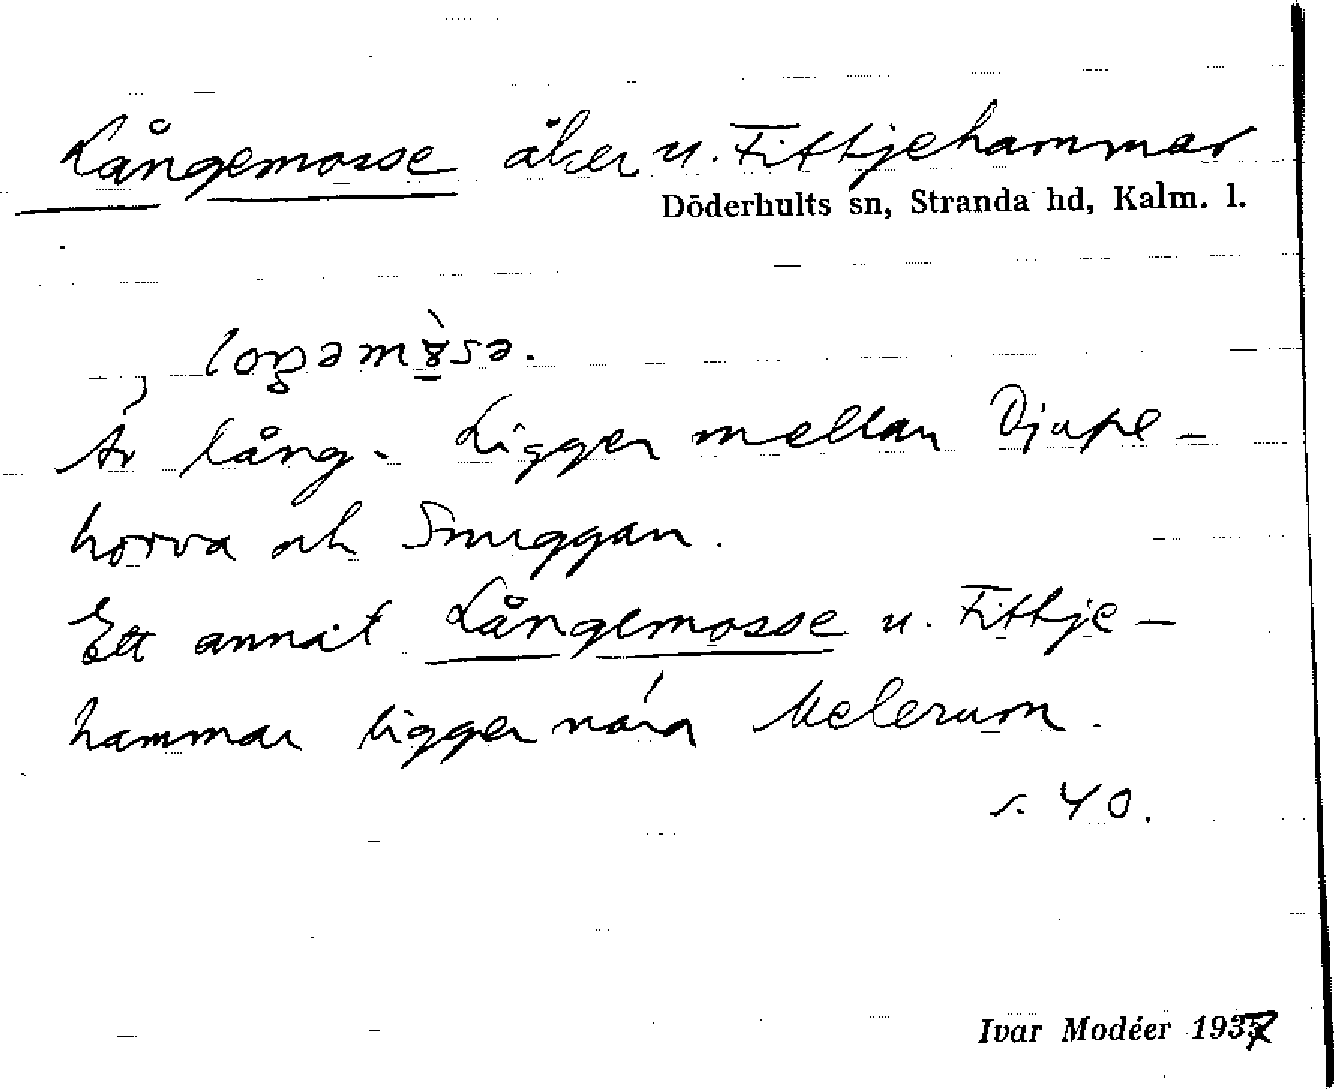 Långemosse åker u. Fittjehammar
Döderhults sn, Stranda hd, Kalm. l.
Är lång. Ligger mellan Djupe-
horva och Smuggan.
Ett annat Långemosse u. Fittje-
hammar ligger nära Melerum.
s. 40.
Ivar Modéer 1937